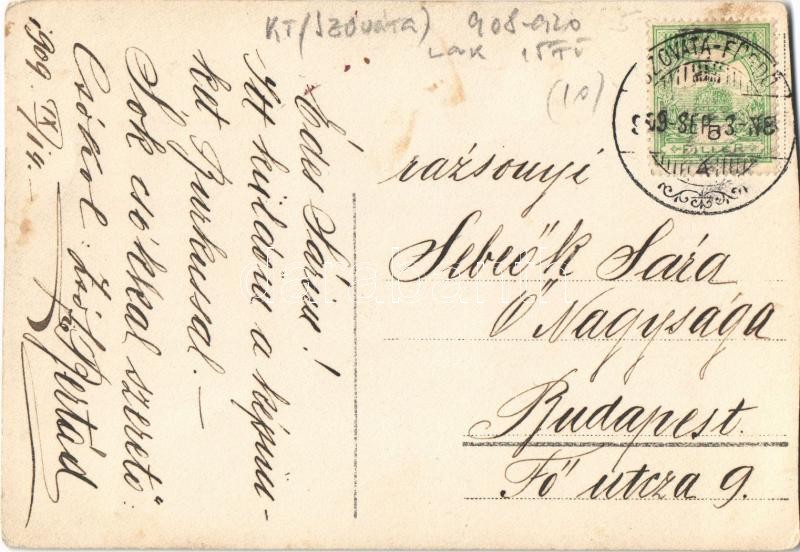 KT/(SZOVÁTA) 908-920
LAK 15 FT
(10)
SZOVÁTA-FÜRDŐ
909 SEP. 3
FILLÉR
Édes Sárim!
Itt küldöm a képün-
ket Burkusal.—
Sok csókkal szerető
Csókol:
Bertád
1909. IX/14.
razsonyi
Sebeők Sára
Ő Nagysága
Budapest.
Fő utcza 9.